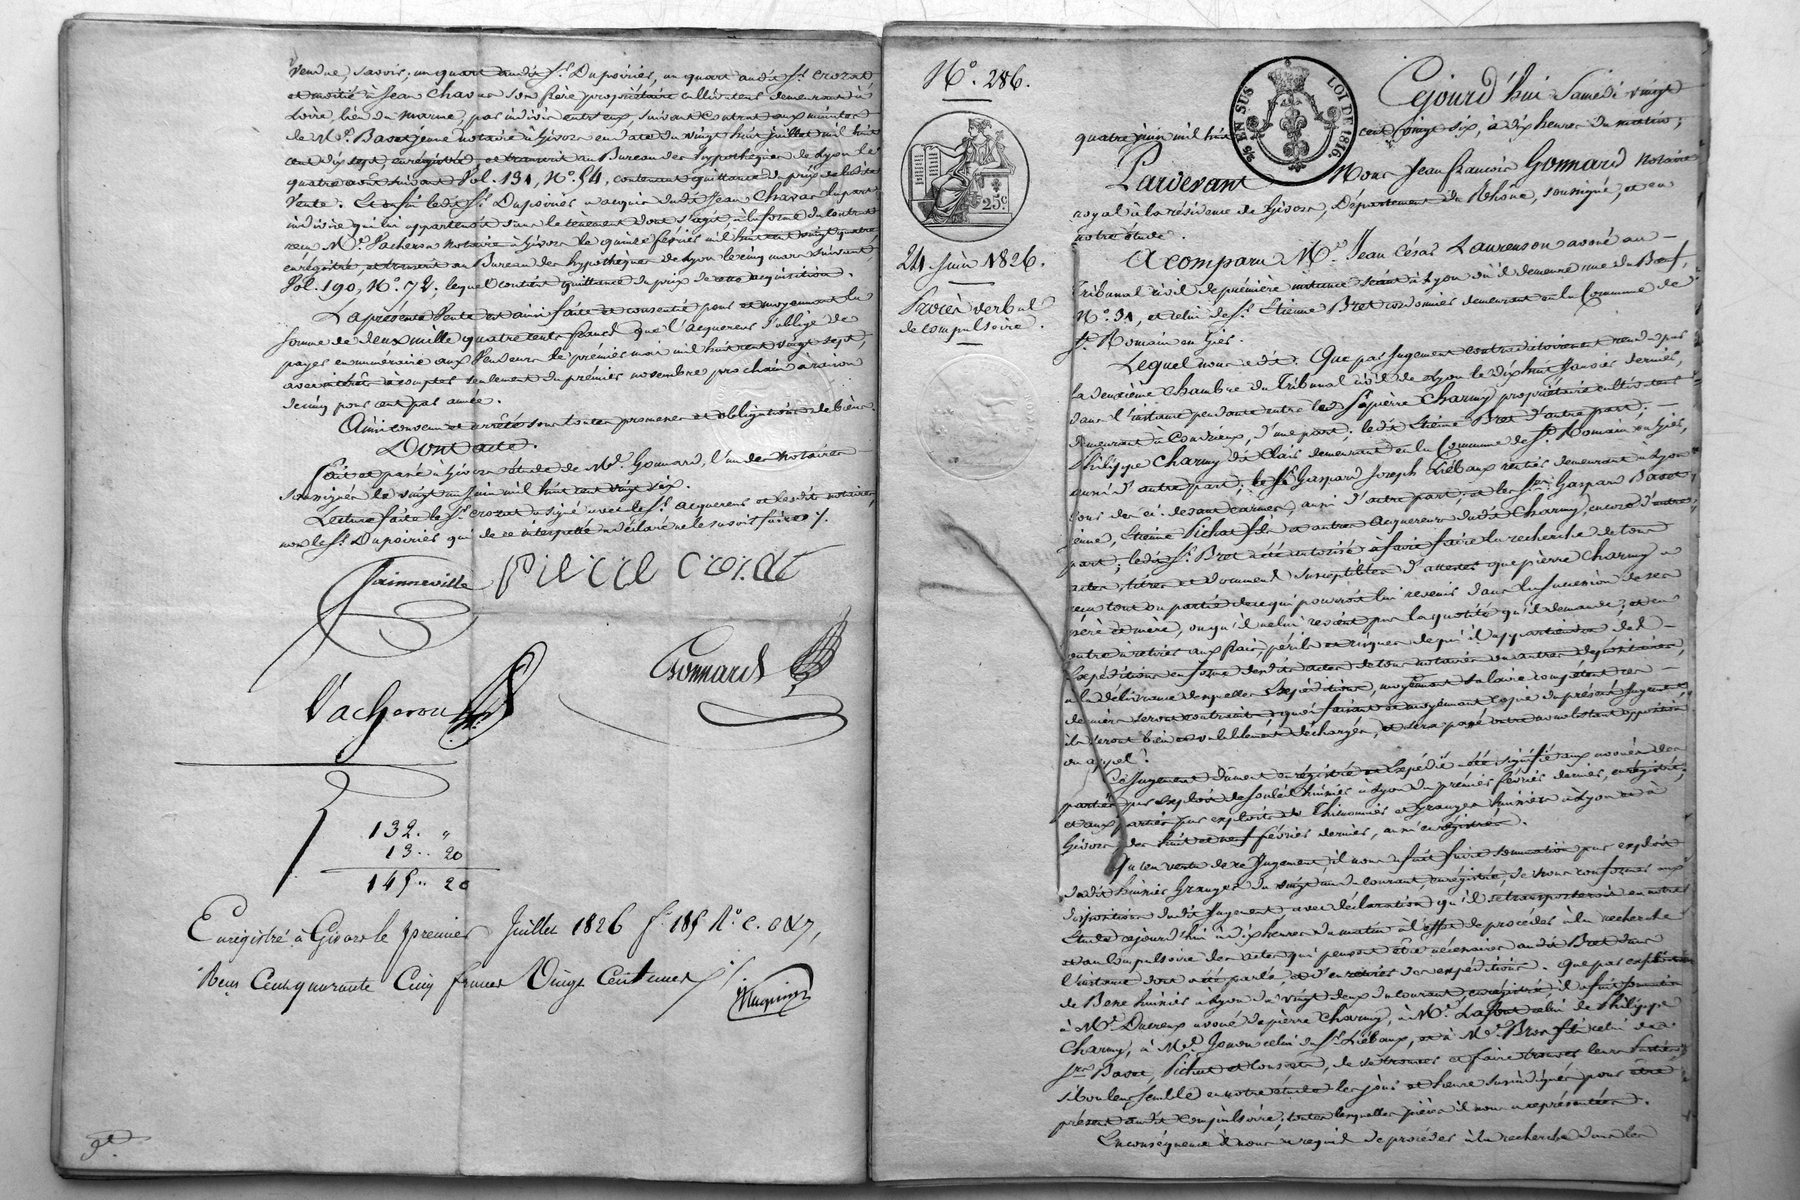 vendue, savoir; un quart audit Sr. Dupoiries, un quart audit Sr. Crozat
et moitié à Jean Chavas son frère propriétaire cultivateur demeurant à
Loire, lieu du marme, par indivis entr'eux, suivant contrat aux minutes
de Me. Basset jeune notaire à Givors en date du vingt huit juillet mil huit
cent dix sept, enrégistré, et transcrit au Bureau des hypothèques de Lyon le
quatre août suivant Vol. 131, No. 54, contenant quittance du prix de ladite
Vente. Et enfin ledit Sr. Dupoiries a acquis dudit Jean Chavas la part
indivise qui lui appartenoit dans le tènement dont s'agit, à la forme du contrat
reçu Me. Vacheron notaire à Givors le quinze février mil huit cent vingt quatre,
enrégistré, et transcrit au Bureau des hypothèques de Lyon le cinq mars suivant,
Vol. 190, No. 72, lequel contient quittance du prix de cette acquisition.
La présente Vente est ainsi faite et consentie pour et moyennant la
somme de deux mille quatre cents francs que l'acquereur s'oblige de
payer en numéraire aux Vendeurs le premier mai mil huit cent vingt sept,
avec intérêts à compter seulement du premier novembre prochain à raison
de cinq pour cent par année.
Ainsi convenu et arrêté sous toutes promesses et obligations de biens.
Dont acte.
Fait et passé à Givors étude de Me. Gonnard, l'un des notaires
soussignés le vingt un juin mil huit cent vingt six.
Lecture faite le Sr. Crozat a signé avec le Sr. acquereur et lesdits notaires,
non le Sr. Dupoiries qui de ce interpellé a déclaré ne le savoir faire ./.
Jainneville Pierre croizat
Gonnard
Vacheron
132. "
13.. 20
145.. 20
Enrégistré à Givors le premier Juillet 1826 fo. 185 Ro. C. 6 et 7,
Reçu Cent quarante Cinq francs Vingt Centimes ./.
No. 286.
25 EN SUS LOI DE 1816.
25 c.
24 Juin 1826.
Procès verbal
de compulsoire.
Cejourd'hui Samedi vingt
quatre juin mil huit cent vingt six, à dix heures du matin;
Pardevant Nous Jean François Gonnard notaire
royal à la résidence de Givors, Département du Rhône, soussigné, et en
notre étude.
A comparu Me. Jean César Laurenson avoué au
Tribunal civil de première instance séant à Lyon où il demeure rue du Bœuf,
No. 31, et celui de Sr. Etienne Bret cordonnier demeurant en la Commune de
St. Romain en Gier.
Lequel nous a dit: Que par Jugement contradictoirement rendu par
la deuxième Chambre du Tribunal civil de Lyon le dix huit Janvier dernier,
dans l'instance pendante entre le Sr. pierre Charmy propriétaire cultivateur
demeurant à Condrieux, d'une part; ledit Etienne Bret d'autre part;
Philippe Charmy dit Clair demeurant en la Commune de St. Romain en Gier,
aussi d'autre part; le Sr. Gaspard Joseph Liébaux rentier demeurant à Lyon
cour des ci-devant carmes, aussi d'autre part; et les Srs. Gaspard Basset
jeune, Etienne Pichat fils et autres acquereurs dudit Charmy, encore d'autre
part; ledit Sr. Bret a été autorisé à faire faire la recherche de tous
actes, titres et documens susceptibles d'attester que pierre Charmy a
reçu tout ou partie de ce qui pourroit lui revenir dans la succession de ses
père et mère, ou qu'il ne lui revient pas la quotité qu'il demande; et en
outre à retirer aux frais, périls et risques de qui il appartiendra de l
Expéditions en forme desdits actes de tous notaires ou autres dépositaires,
à la délivrance desquelles expéditions, moyennant salaire compétent ces
derniers seront contraints, quoi faisant et moyennant copie du présent Jugement,
ils seront bien et valablement déchargés, et sera passé outre nonobstant opposition
ou appel.
Ce Jugement dûment enrégistré et expédié a été signifié aux avoués des
parties par exploit de Souleil huissier à Lyon du premier février dernier, enrégistré;
et aux parties par exploits de Thimonnier et Granger huissiers à Lyon et à
Givors des huit et neuf février dernier, aussi enrégistrés.
Qu'en vertu de ce Jugement, il nous a fait faire sommation par exploit
dudit huissier Granger du vingt un du courant, enrégistré, de nous conformer aux
dispositions dudit Jugement, avec déclaration qu'il se transporteroit en notre
Etude cejourd'hui à dix heures du matin à l'effet de procéder à la recherche
et au compulsoire des actes qui peuvent être nécessaires audit Bret dans
l'instance dont a été parlé, et d'en retirer des expéditions. Que par exploit
de Bene huissier à Lyon du vingt deux du courant, enrégistré, il a fait sommation
à Me. Ducreux avoué de pierre Charmy, à Me. Lafont celui de Philippe
Charmy, à Me. celui du Sr. Liébaux, et à Me. Bros fils celui des
Srs. Basset, Pichat et consorts, de se trouver et faire trouver leurs parties
si bon leur semble en notre étude les jour et heure susindiqués, pour être
présent audit compulsoire; toutes lesquelles pièces il nous a représentées.
En conséquence il nous a requis de procéder à la recherche dans les